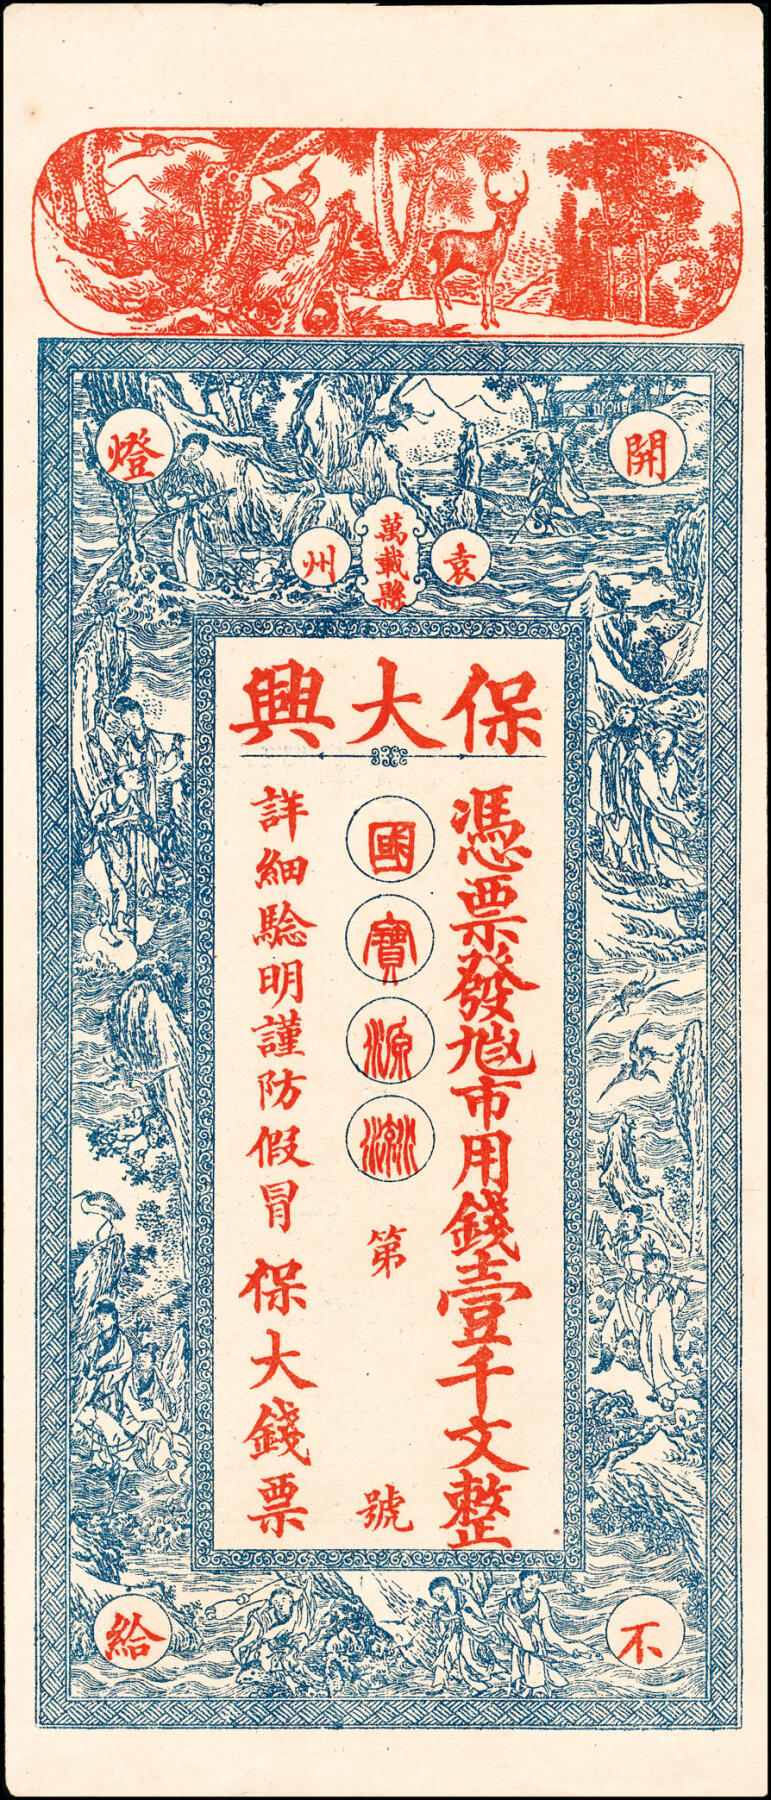 開燈
袁州
萬載縣
保大興
憑票發市用錢壹千文整
國寶源流
第 號
詳細騐明謹防假冒 保大錢票
不給